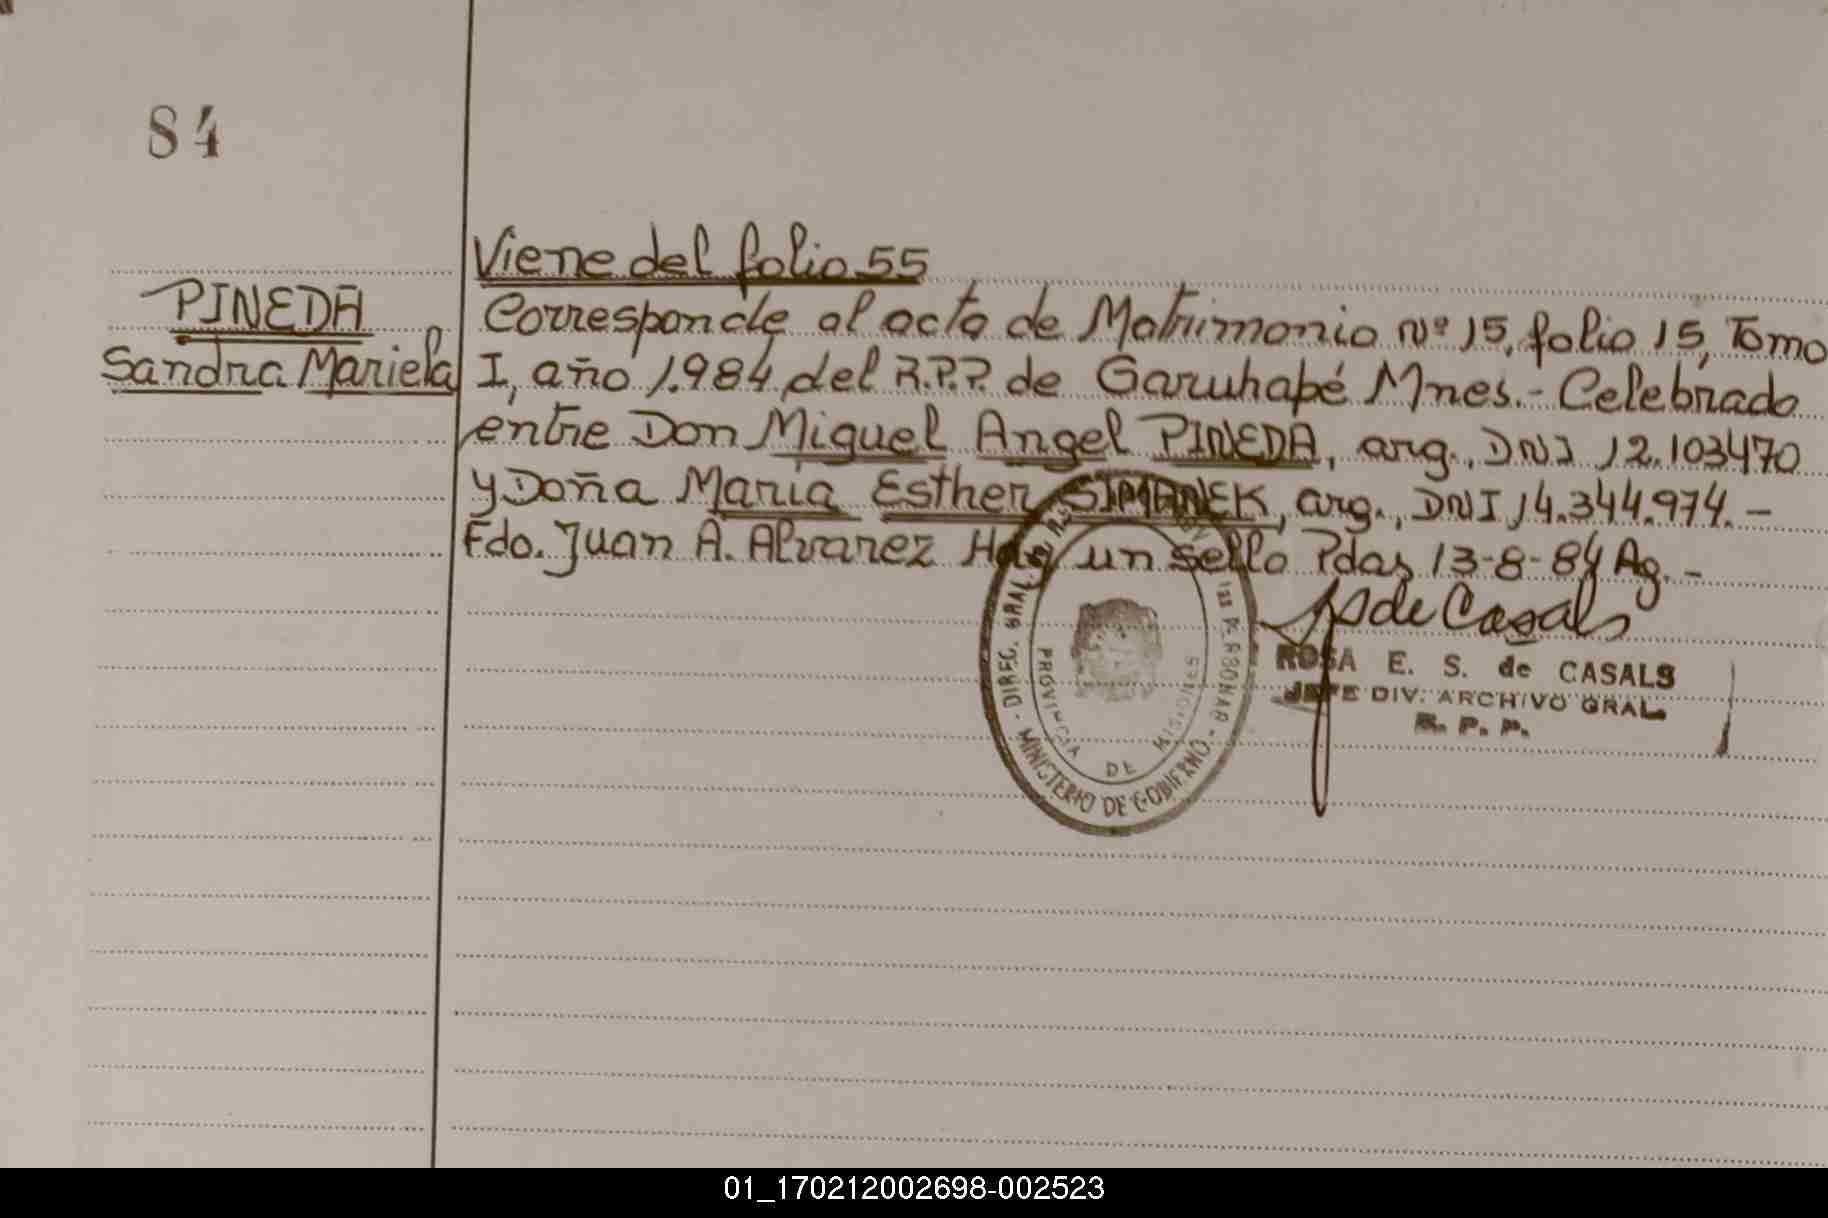 84
Viene del folio 55
PINEDA
Sandra Mariela
Corresponde al acta de Matrimonio Nº 15, folio 15, Tomo
I, año 1.984 del R.P.P. de Garuhapé Mnes.- Celebrado
entre Don Miguel Angel PINEDA, arg., DNI 12.103470
y Doña Maria Esther SIMANEK, arg., DNI 14.344.974.-
Fdo. Juan A. Alvarez Hay un sello Pdas 13-8-84 Ag.-
de Casals
ROSA E. S. de CASALS
JEFE DIV. ARCHIVO GRAL.
R. P. P.
DIREC. GRAL.
PROVINCIA DE MISIONES
- MINISTERIO DE GOBIERNO -
01_170212002698-002523